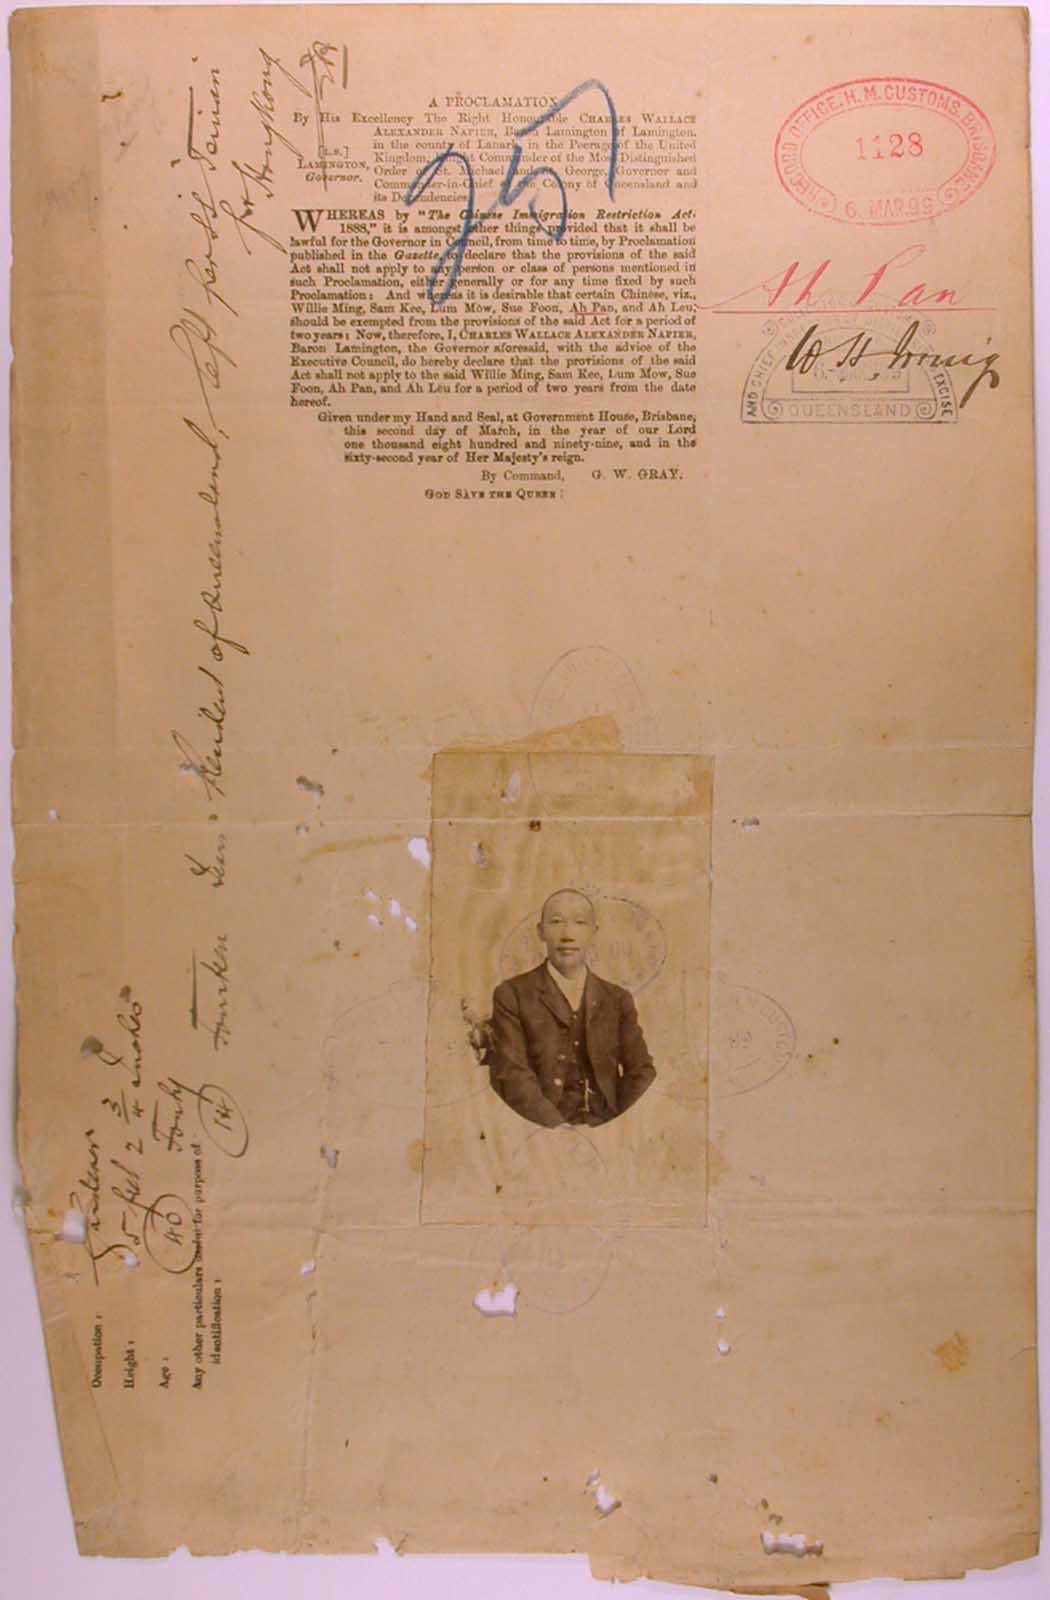 A PROCLAMATION
By His Excellency The Right Honourable CHARLES WALLACE
ALEXANDER NAPIER, Baron Lamington of Lamington,
in the county of Lanark, in the Peerage of the United
[L.S.] Kingdom, Knight Commander of the Most Distinguished
LAMINGTON, Order of St. Michael and St. George, Governor and
Governor. Commander-in-Chief of the Colony of Queensland and
its Dependencies.
WHEREAS by "The Chinese Immigration Restriction Act
1888," it is amongst other things provided that it shall be
lawful for the Governor in Council, from time to time, by Proclamation
published in the Gazette, to declare that the provisions of the said
Act shall not apply to any person or class of persons mentioned in
such Proclamation, either generally or for any time fixed by such
Proclamation: And whereas it is desirable that certain Chinese, viz.,
Willie Ming, Sam Kee, Lum Mow, Sue Foon, Ah Pan, and Ah Leu,
should be exempted from the provisions of the said Act for a period of
two years: Now, therefore, I, CHARLES WALLACE ALEXANDER NAPIER,
Baron Lamington, the Governor aforesaid, with the advice of the
Executive Council, do hereby declare that the provisions of the said
Act shall not apply to the said Willie Ming, Sam Kee, Lum Mow, Sue
Foon, Ah Pan, and Ah Leu for a period of two years from the date
hereof.
Given under my Hand and Seal, at Government House, Brisbane,
this second day of March, in the year of our Lord
one thousand eight hundred and ninety-nine, and in the
sixty-second year of Her Majesty's reign.
By Command, G. W. GRAY.
GOD SAVE THE QUEEN!
257
RECORD OFFICE, H.M. CUSTOMS, BRISBANE
1128
6. MAR. 99
Ah Pan
W. H. Irving
AND CHIEF EXCISE
QUEENSLAND
Occupation: Gardener
Height: 5 feet 2 3/4 Inches
Age: (40) Forty
Any other particulars useful for purpose of
identification:
(14) Fourteen Years Resident of Queensland, left per S.S. Tsinan
for Hong Kong